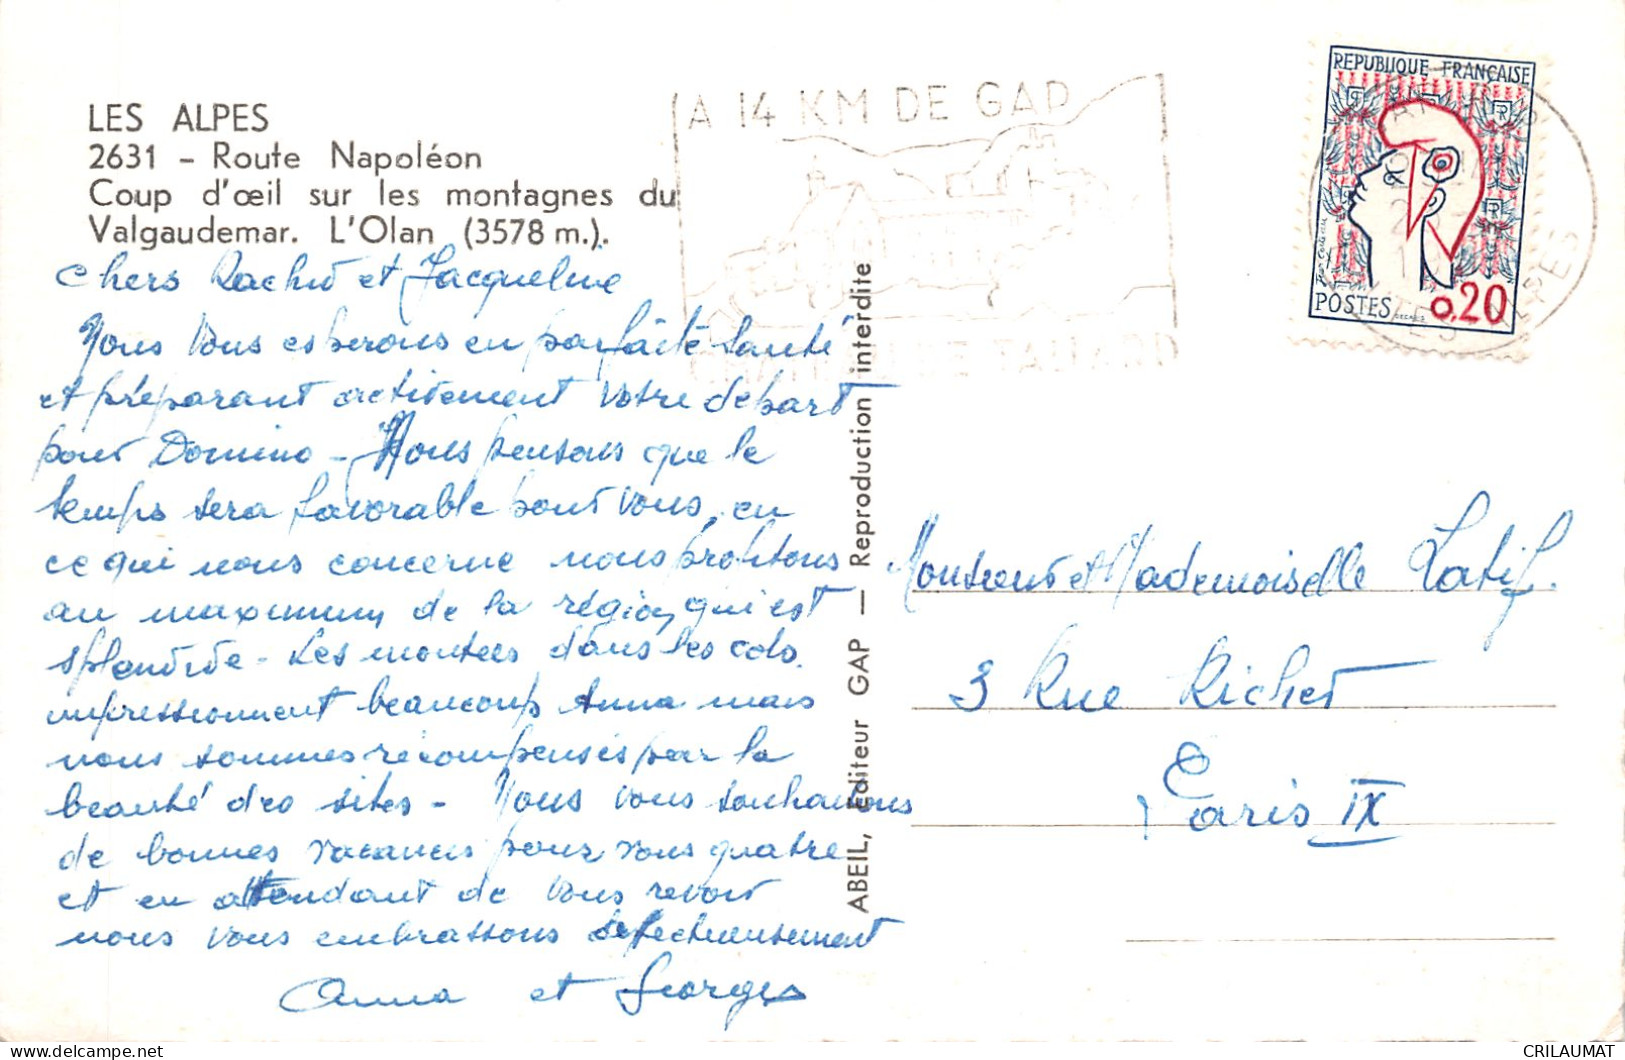 LES ALPES
2631 - Route Napoléon
Coup d'œil sur les montagnes du
Valgaudemar. L'Olan (3578 m.).
Chers Rachid et Jacqueline
Nous vous esperons en parfaite santé
et préparant activement votre départ
pour Domino - Nous pensons que le
temps sera favorable pour vous, en
ce qui nous concerne nous profitons
au maximum de la région qui est
splendide - Les montées dans les cols
impressionnent beaucoup Anna mais
nous sommes récompensés par la
beauté des sites - Nous vous souhaitons
de bonnes vacances pour vous quatre
et en attendant de vous revoir
nous vous embrassons affectueusement
Anna et Georges
ABEIL, Editeur GAP — Reproduction interdite
A 14 KM DE GAP
TALLARD
REPUBLIQUE FRANÇAISE
POSTES
0,20
ALPES
Monsieur et Mademoiselle Latif.
3 Rue Richer
Paris IX
CRILAUMAT